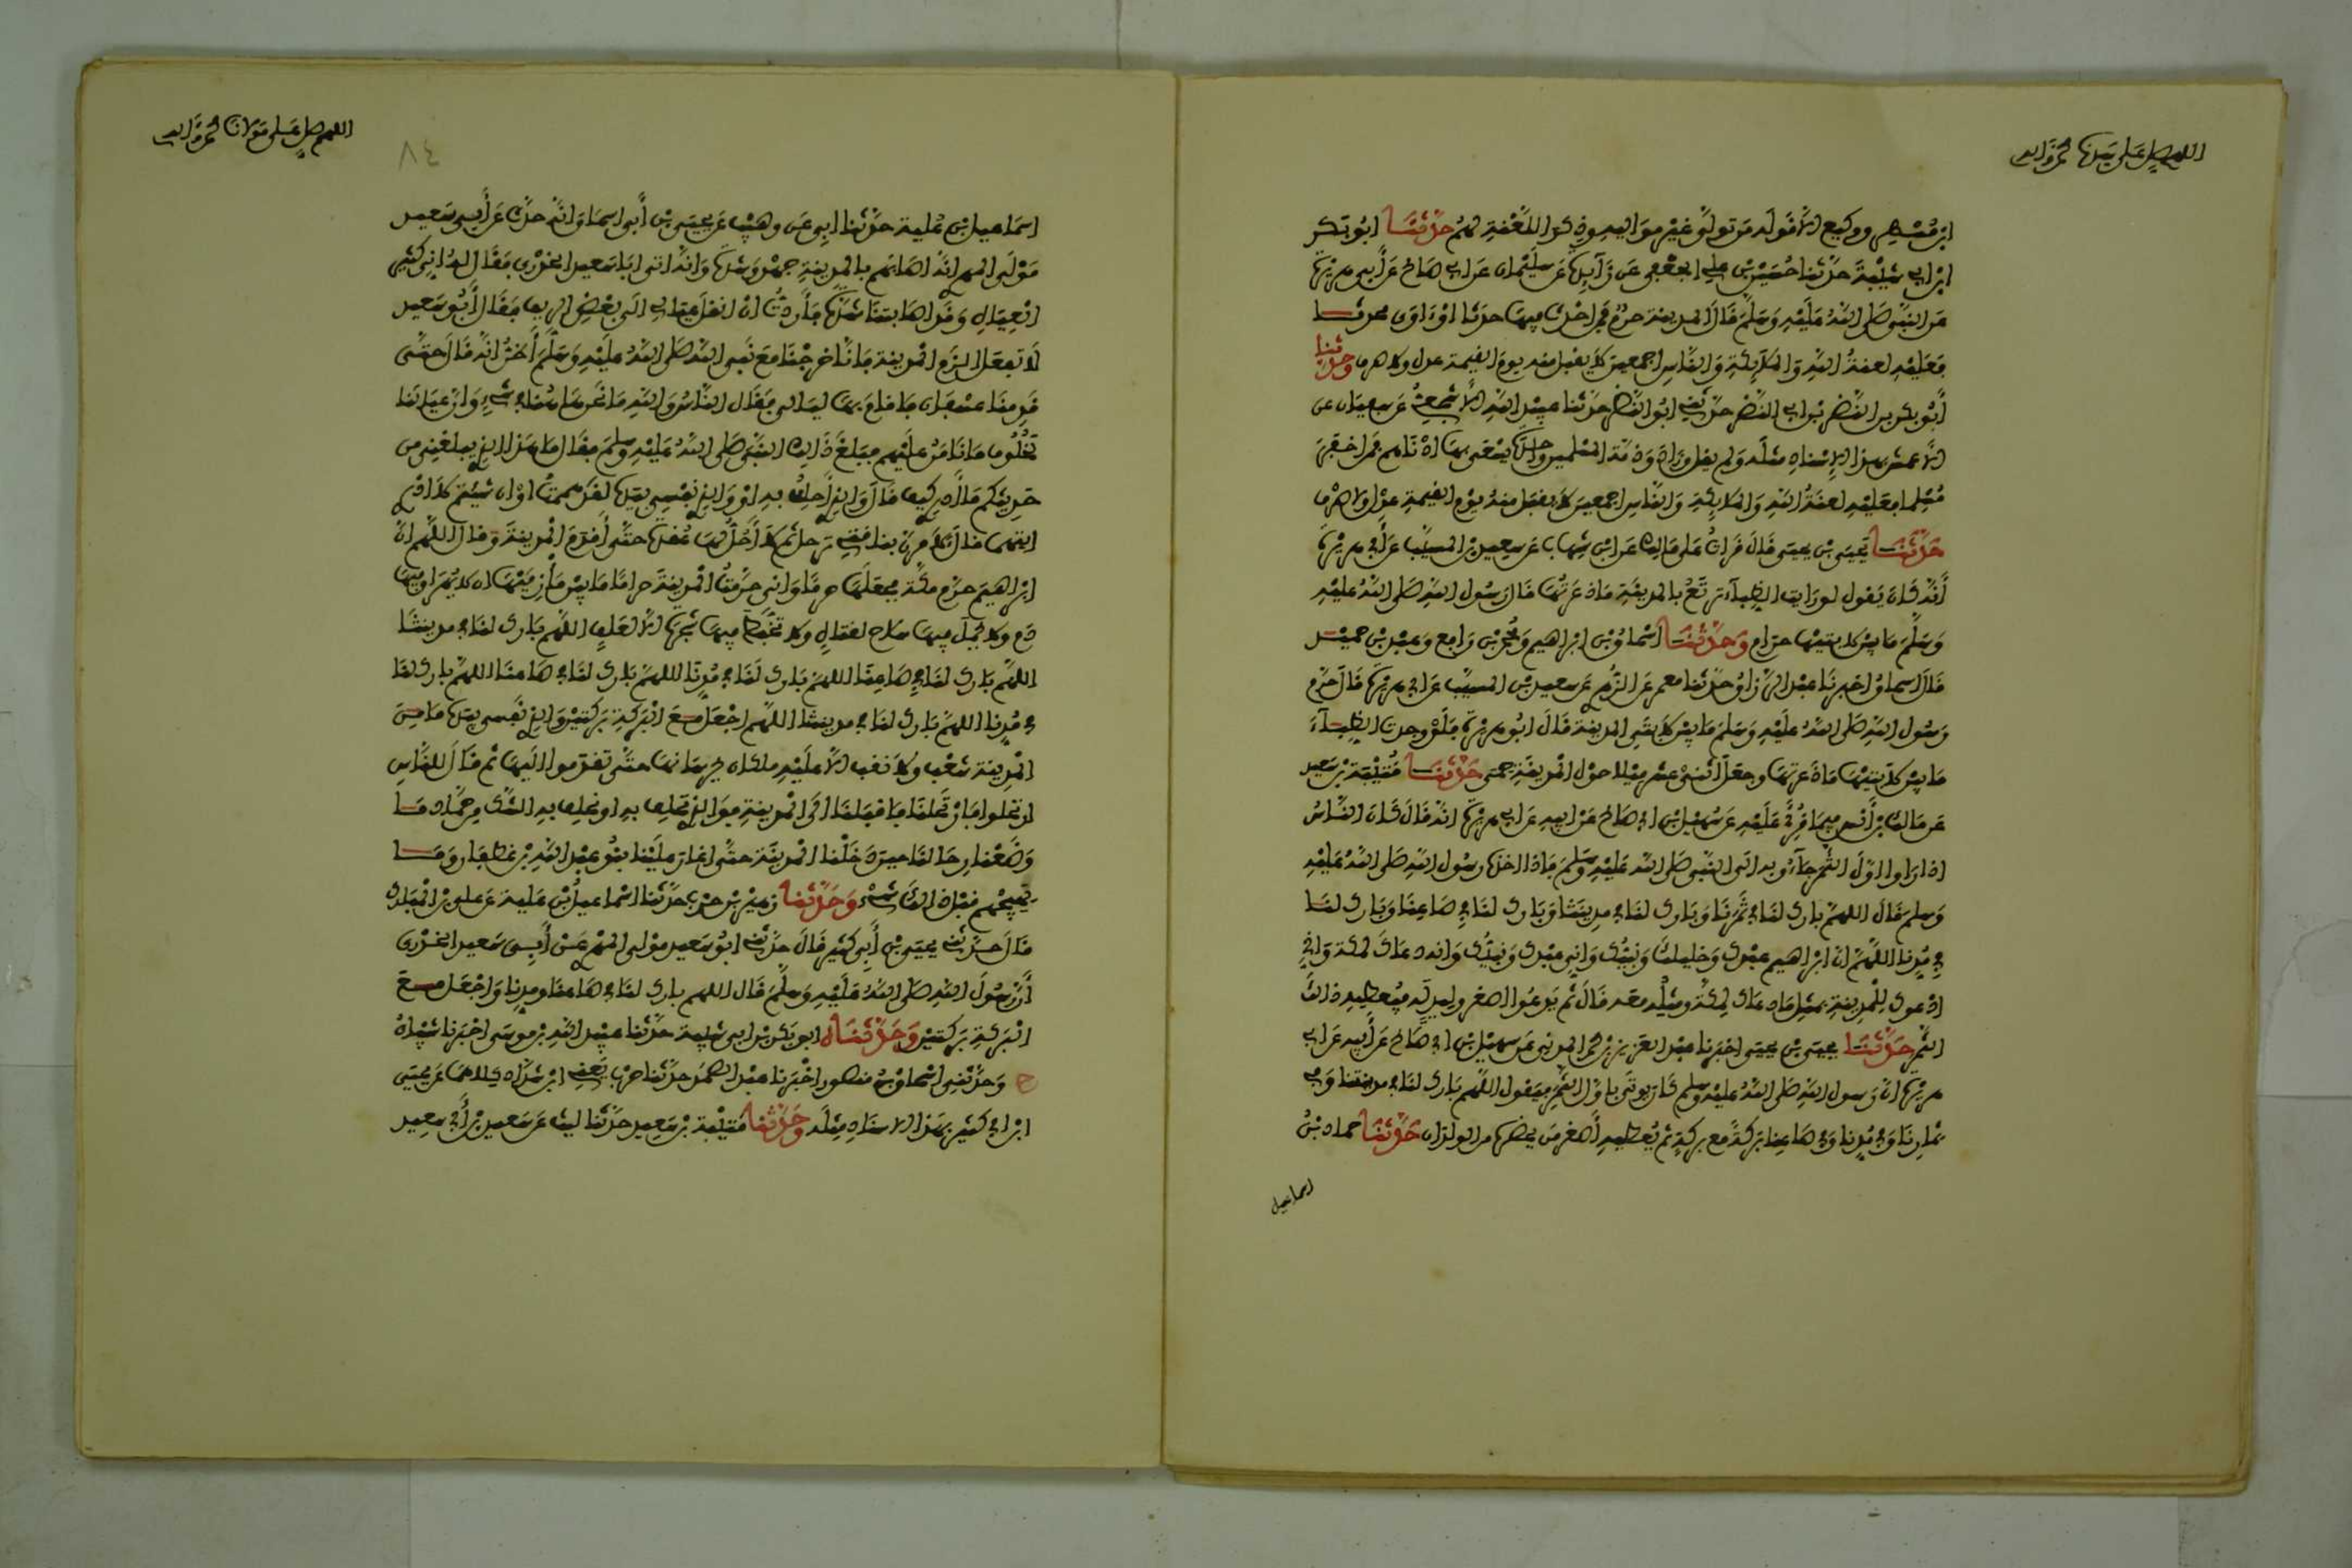 اللهم صل على سيدنا محمد وآله
ابن مسهر ووكيع إلا قوله من تولى غير مواليه وذكر اللعنة لهم حدثنا أبو بكر
ابن أبي شيبة حدثنا حسين بن علي الجعفي عن زايدة عن سليمان عن أبي صالح عن أبي هريرة
عن النبي صلى الله عليه وسلم قال المدينة حرم فمن أحدث فيها حدثا أو آوى محدثا
فعليه لعنة الله والملائكة والناس أجمعين لا يقبل منه يوم القيمة عدل ولا صرف وحدثنا
أبو بكر بن النضر بن أبي النضر حدثني أبو النضر حدثنا عبيد الله الأشجعي عن سفيان عن
الأعمش بهذا الإسناد مثله ولم يقل وزاد وذمة المسلمين واحدة يسعى بها أدناهم فمن أخفر
مسلما فعليه لعنة الله والملائكة والناس أجمعين لا يقبل منه يوم القيمة عدل ولا صرف
حدثنا يحيى بن يحيى قال قرأت على مالك عن ابن شهاب عن سعيد بن المسيب عن أبي هريرة
أنه كان يقول لو رأيت الظباء ترتع بالمدينة ما ذعرتها قال رسول الله صلى الله عليه
وسلم ما بين لابتيها حرام وحدثنا إسحاق بن إبراهيم ومحمد بن رافع وعبد بن حميد
قال إسحاق أخبرنا عبد الرزاق حدثنا معمر عن الزهري عن سعيد بن المسيب عن أبي هريرة قال حرم
رسول الله صلى الله عليه وسلم ما بين لابتي المدينة قال أبو هريرة فلو وجدت الظباء
ما بين لابتيها ما ذعرتها وجعل اثنى عشر ميلا حول المدينة حمى حدثنا قتيبة بن سعيد
عن مالك بن أنس فيما قرئ عليه عن سهيل بن أبي صالح عن أبيه عن أبي هريرة أنه قال كان الناس
إذا رأوا أول الثمر جاءوا به إلى النبي صلى الله عليه وسلم فإذا أخذه رسول الله صلى الله عليه
وسلم قال اللهم بارك لنا في ثمرنا وبارك لنا في مدينتنا وبارك لنا في صاعنا وبارك لنا
في مدنا اللهم إن إبراهيم عبدك وخليلك ونبيك وإني عبدك ونبيك وإنه دعاك لمكة وإني
أدعوك للمدينة بمثل ما دعاك لمكة ومثله معه قال ثم يدعو أصغر وليد له فيعطيه ذلك
الثمر حدثنا يحيى بن يحيى أخبرنا عبد العزيز بن محمد المدني عن سهيل بن أبي صالح عن أبيه عن أبي
هريرة أن رسول الله صلى الله عليه وسلم كان يوتى بأول الثمر فيقول اللهم بارك لنا في مدينتنا وفي
ثمارنا وفي مدنا وفي صاعنا بركة مع بركة ثم يعطيه أصغر من يحضره من الولدان حدثنا حماد بن
إسماعيل
اللهم صل على مولانا محمد وآله
٨٤
إسماعيل بن علية حدثنا أبي عن وهيب عن يحيى بن أبي إسحاق أنه حدث عن أبي سعيد
مولى المهري أنه أصابهم بالمدينة جهد وشدة وأنه أتى أبا سعيد الخدري فقال له إني كثير
العيال وقد أصابتنا شدة فأردت أن أنقل عيالي إلى بعض الريف فقال أبو سعيد
لا تفعل الزم المدينة فإنا خرجنا مع نبي الله صلى الله عليه وسلم أظن أنه قال حتى
قدمنا عسفان فأقام بها ليالي فقال الناس والله ما نحن هاهنا في شيء وإن عيالنا
لخلوف ما نامن عليهم فبلغ ذلك النبي صلى الله عليه وسلم فقال ما هذا الذي يبلغني من
حديثكم ما أدري كيف قال والذي أحلف به أو والذي نفسي بيده لقد هممت أو إن شئتم لا أدري
أيتهما قال لآمرن بناقتي ترحل ثم لا أحل لها عقدة حتى أقدم المدينة وقال اللهم إن
إبراهيم حرم مكة فجعلها حرما وإني حرمت المدينة حراما ما بين مأزميها أن لا يهراق فيها
دم ولا يحمل فيها سلاح لقتال ولا تخبط فيها شجرة إلا لعلف اللهم بارك لنا في مدينتنا
اللهم بارك لنا في صاعنا اللهم بارك لنا في مدنا اللهم بارك لنا في صاعنا اللهم بارك لنا
في مدنا اللهم بارك لنا في مدينتنا اللهم اجعل مع البركة بركتين والذي نفسي بيده ما من
المدينة شعب ولا نقب إلا عليه ملكان يحرسانها حتى تقدموا إليها ثم قال للناس
ارتحلوا فارتحلنا فأقبلنا إلى المدينة فوالذي نحلف به أو يحلف به الشك من حماد ما
وضعنا رحالنا حين دخلنا المدينة حتى أغار علينا بنو عبد الله بن غطفان وما
يهيجهم قبل ذلك شيء وحدثنا زهير بن حرب حدثنا إسماعيل بن علية عن علي بن المبارك
قال حدثني يحيى بن أبي كثير قال حدثني أبو سعيد مولى المهري عن أبي سعيد الخدري
أن رسول الله صلى الله عليه وسلم قال اللهم بارك لنا في صاعنا ومدنا واجعل مع
البركة بركتين وحدثناه أبو بكر بن أبي شيبة حدثنا عبيد الله بن موسى أخبرنا شيبان
ح وحدثني إسحاق بن منصور أخبرنا عبد الصمد حدثنا حرب يعني ابن شداد كلاهما عن يحيى
ابن أبي كثير بهذا الإسناد مثله وحدثنا قتيبة بن سعيد حدثنا ليث عن سعيد بن أبي سعيد